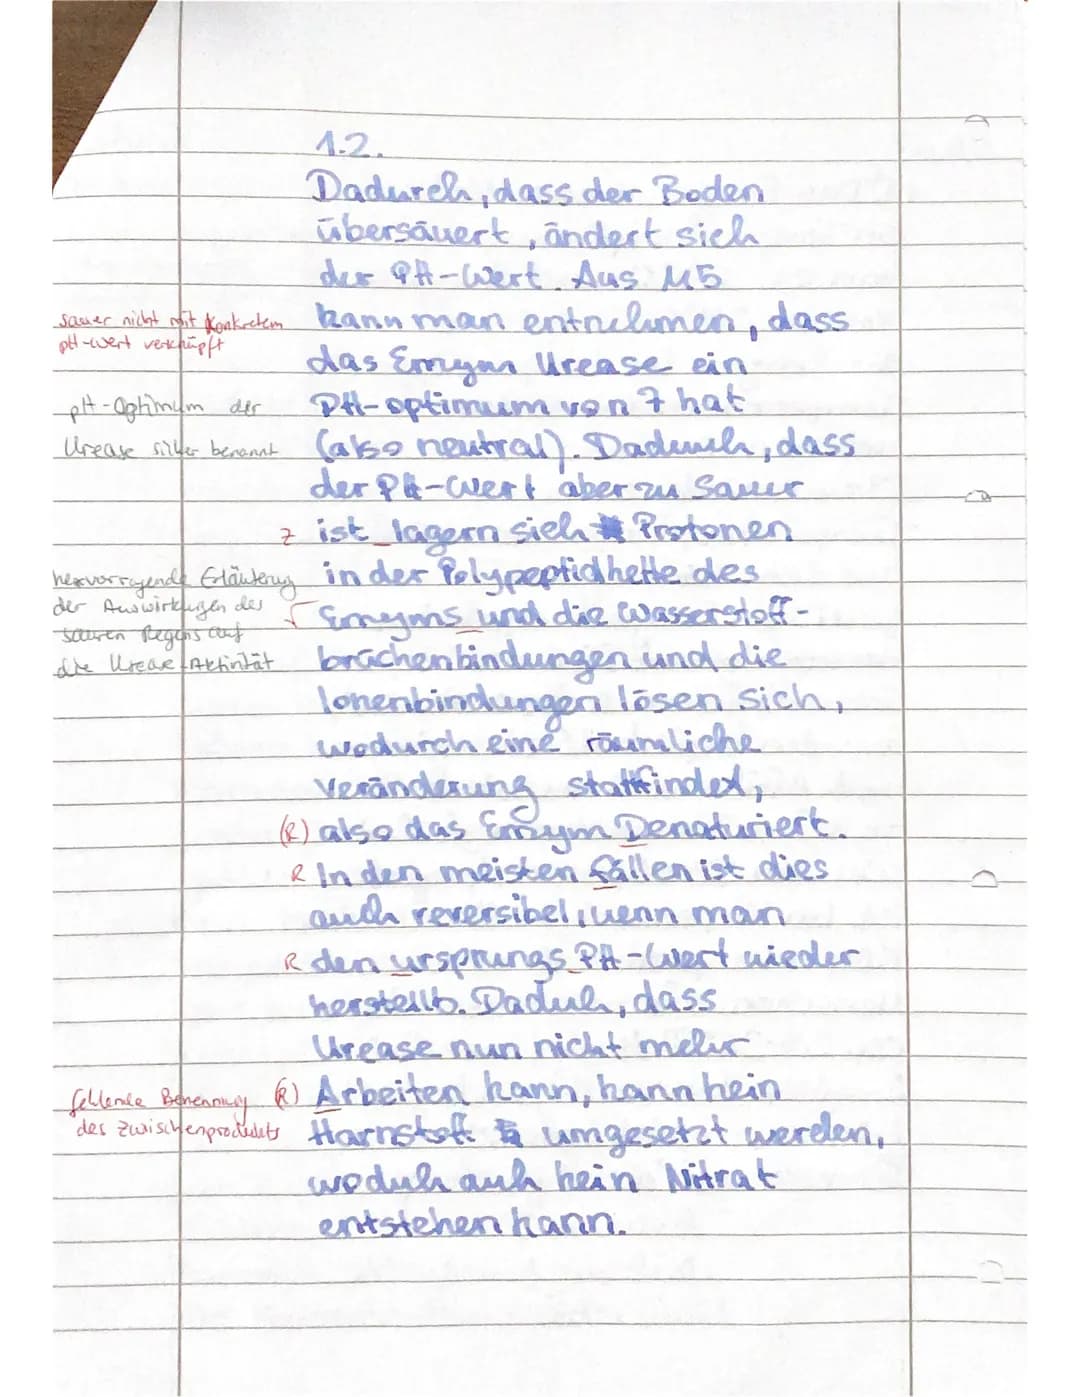 1.2.
Dadurch, dass der Boden
übersäuert, ändert sich
der PH-Wert. Aus M5
sauer nicht mit konkretem
pH-Wert verknüpft
kann man entnehmen, dass
das Emzym Urease ein
pH-Optimum der
Urease silber benannt
PH-optimum von 7 hat
(also neutral). Daduuch, dass
der PH-Wert aber zu Sauer
Z ist lagern sich Protonen
hervorragende Erläuterung
der Auswirkungen des
sauren Regens auf
die Urease-Aktivität
in der Polypeptidkette des
Γ Emzyms und die Wasserstoff-
brüchenbindungen und die
Ionenbindungen lösen sich,
wodurch eine räumliche
veränderung stattfindet,
(R) also das Emzym Denaturiert.
R In den meisten fällen ist dies
auch reversibel, wenn man
R den ursprungs PH-Wert wieder
herstellt. Daduch, dass
Urease nun nicht mehr
fehlende Benennung
des Zwischenprodukts
(R) Arbeiten kann, kann kein
Harnstoff umgesetzt werden,
woduch auch kein Nitrat
entstehen kann.